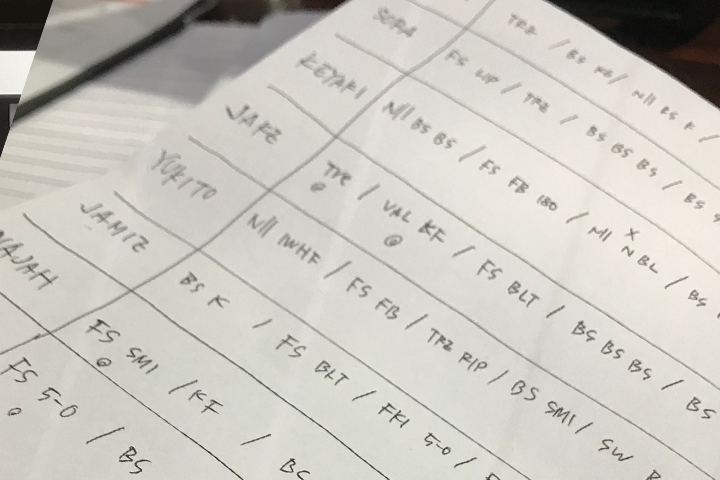 SORA TRZ / BS KG / N// BS K /
KEYAKI FS LIP / TRZ / BS BS BS / BS
JAKE N// BS BS / FS FB 180 / M1 X N BL / BS
YUKITO TRE / VAL KF / FS BLT / BS BS BS / BS
JAMIE N// IWHF / FS FB / TRZ RIP / BS SMI / SW B
NAJAH BS K / FS BLT / FK1 5-0 /
FS SMI / KF / BS
FS 5-0 / BS